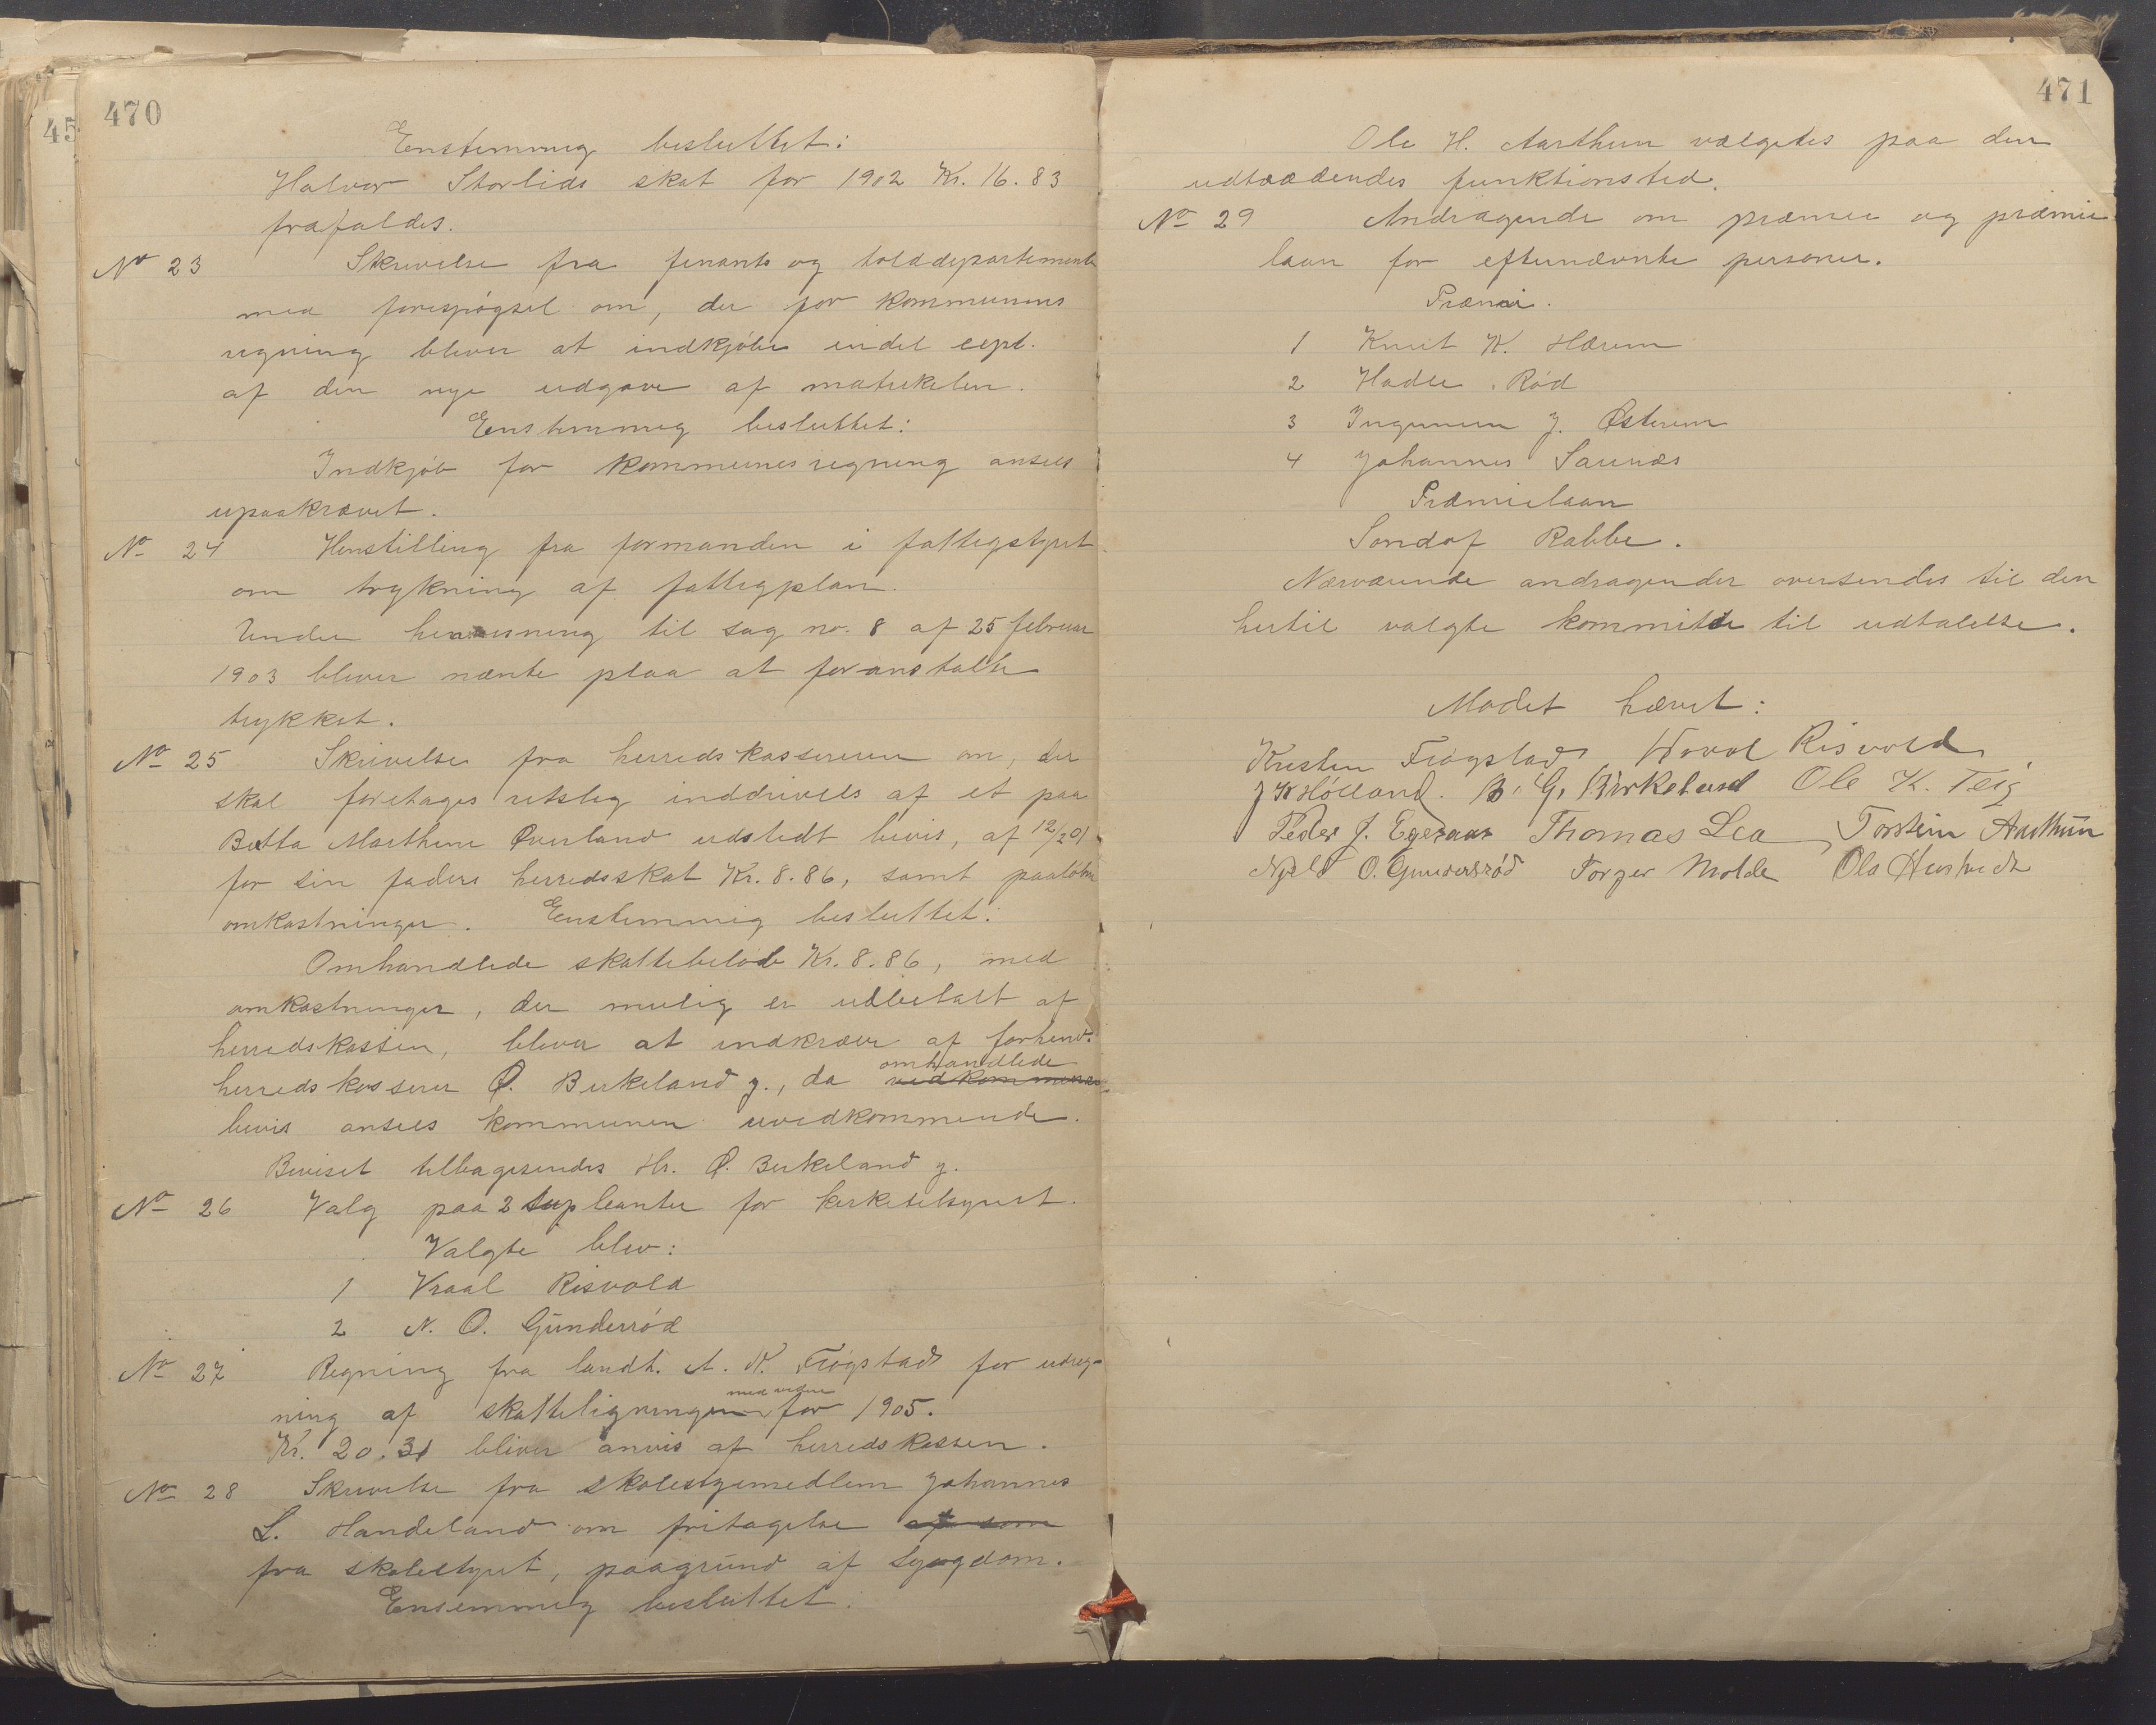 470
Enstemmig besluttet:
Halvor Storlids skat for 1902 Kr. 16.83
frafaldes.
No 23 Skrivelse fra finants og tolddepartement
med forespøgsel om, der for kommunens
regning bliver at indkjøbe endel expl.
af den nye udgave af matrikelen.
Enstemmig besluttet:
Indkjøb for kommunes regning ansees
upaakrævet.
No 24 Henstilling fra formanden i fattigstyret
om trykning af fattigplan.
Under henvisning til sag no. 8 af 25 februar
1903 bliver nævnte plaa at foranstalte
trykket.
No 25 Skrivelse fra herredskassereren om, der
skal foretages retslig inddrivels af et paa
Berta Marthine Øverland udstedt bevis, af 12/2 01
for sin faders herredsskat Kr. 8.86, samt paaløbne
omkostninger. Enstemmig besluttet:
Omhandlede skattebeløb Kr. 8.86, med
omkostninger, der mulig er udbetalt af
herredskassen, bliver at indkræve af forhenv.
omhandlede
herredskasserer Ø. Birkeland y., da vedkommende
bevis ansees kommunen uvedkommende.
Beviset tilbagesendes Hr. Ø. Birkeland y.
No 26 Valg paa 2 supleanter for kirketilsynet.
Valgte blev:
1 Vraal Risvold
2 N. O. Gundersrød
No 27 Regning fra landh. A. K. Frøgstad for udreg-
med videre
ning af skatteligningen for 1905.
Kr. 20.31 bliver anvis af herredskassen.
No 28 Skrivelse fra skolestyemedlem Johannes
L. Handeland om fritagelse af som
fra skolestyret, paagrund af sygdom.
Ensemmig besluttet.
471
Ole H. Aarthun vælgedes paa den
udtrædendes funktionsted.
No 29 Andragende om præmie og præmie
laan for efternævnte personer.
Præmie.
1 Knut K. Hærem
2 Hadle Rød
3
4 Johannes
Præmielaan
Sondof Rabbe.
Nærværende andragender oversendes til den
hertil valgte kommitte til udtalelse.
Mødet hævet:
Kristen Frøgstad Vraal Risvold
J K Hólland. B. G. Birkeland Ole K. Teig
Peder J. Egeraas Thomas Lea Torstein Aarthun
O. Gundersrød Torger Molde Ola